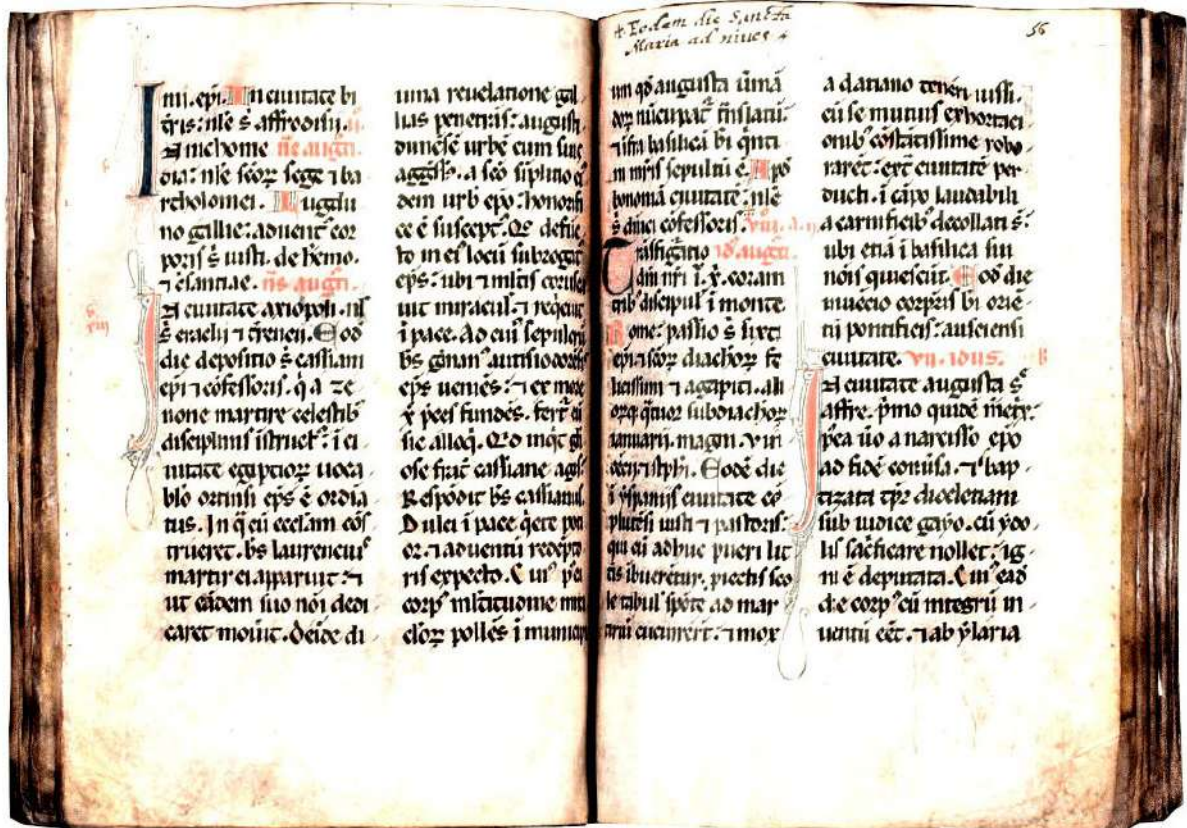 nii. epi. In ciuitate bi
tris: nłe s̄ affrodisii. ii.
N ichome n̄e augti.
dia: nłe scōꝝ sege ⁊ ba
rtholomei. Lugdu
no gallie: aduent' cor
poris s̄ iusti. de hēmo.
⁊ c̄santiae. n̄s augti.
N ciuitate axiopoli. nł
s̄ eraclij ⁊ t̄renei. Eod̄
die depositio s̄ cassiani
epi ⁊ cōfessoris. q̇ a ze
none martire celestib'
disciplinis īstruct': ī ci
uitate egiptioꝝ uoca
blo ortinsi ep̄s ē ordīa
tus. In q̇ cū eccl̄am cōs
trueret. b̄s laurencius
martir ei apparuit: ⁊
ut eādem suo nōi dedi
caret mouit. Deīde di
uina reuelatione gal
lias penetrās: augusti
dunēsē urbē cum sue
a scō siplicio ei'
dem urb' epo: honorifi
ce ē suscept'. Q̇ defūc
to in ei' locū subrogat'
ep̄s: ubi ⁊ mltis corusca
uit miracul'. ⁊ reqeuit
ī pace. Ad cui' sepulcrū
b̄s gman' autisiodorēsis
ep̄s ueniēs: ⁊ ex more
p̄ces fundēs. fert' eū
sic alloq̇. Q̇d inq̇t gl̄i
ose frat' cassiane agis
Respōdit b̄s cassianus
Dulci ī pace q̇ete poti
or. ⁊ aduentū redēpto
ris expecto. Cui' p̄ci
corp' mltitudine mira
cl̄oꝝ pollēs ī munici
+ Eodem die Sancta
Maria ad niues +
56
um qd̄ augusta ūmā
doꝝ nūcupat' t̄nslatū
⁊ īfra basilicā bi q̇nti
ni mr̄is sepultū ē. Apd̄
bononiā ciuitatē: nłe
s̄ diuci cōfessoris. viii.
Trāsfigatio id' augti.
dni nr̄i i. x̄. coram
trib' discipul' ī monte.
Rome: passio s̄ sixti
epi ⁊ scōꝝ diachoꝝ fe
licissimi ⁊ agapiti. ali
orꝝ q̇tuor subdiachoꝝ
ianuarij. magni. vin
cēcij ⁊ stphi. Eodē die
ī yspaniis ciuitate cō
plutēsi iusti ⁊ pastoris:
qui cū adhuc pueri lit
tis ibuerētur. piectis sco
le tabul' spōte ad mar
tiriū cucurrert: ⁊ mox
a datiano teneri iussi.
cū se mutuis exhortaci
onib' cōstātissime robo
rarēt: ext' ciuitatē per
ducti. ī cāpo laudabili
a carnificib' decollati s̄:
ubi etiā ī basilica sui
nōis quiescūt. Eod̄ die
inuēcio corpis bi oriē
tii pontificis: ausciensi
ciuitate. vii. idus.
N ciuitate augusta s̄
affre. p̄mo quidē
p̄ea ūo a narcisso epo
ad fidē conūsa. ⁊ bap
tizata tp̄r diocletiani
sub iudice gayo. cū ydo
lis sac̄ficare nollet: ig
ni ē deputata. Cui' ead̄
die corp' cū integrū in
uentū eēt. ⁊ ab ylaria